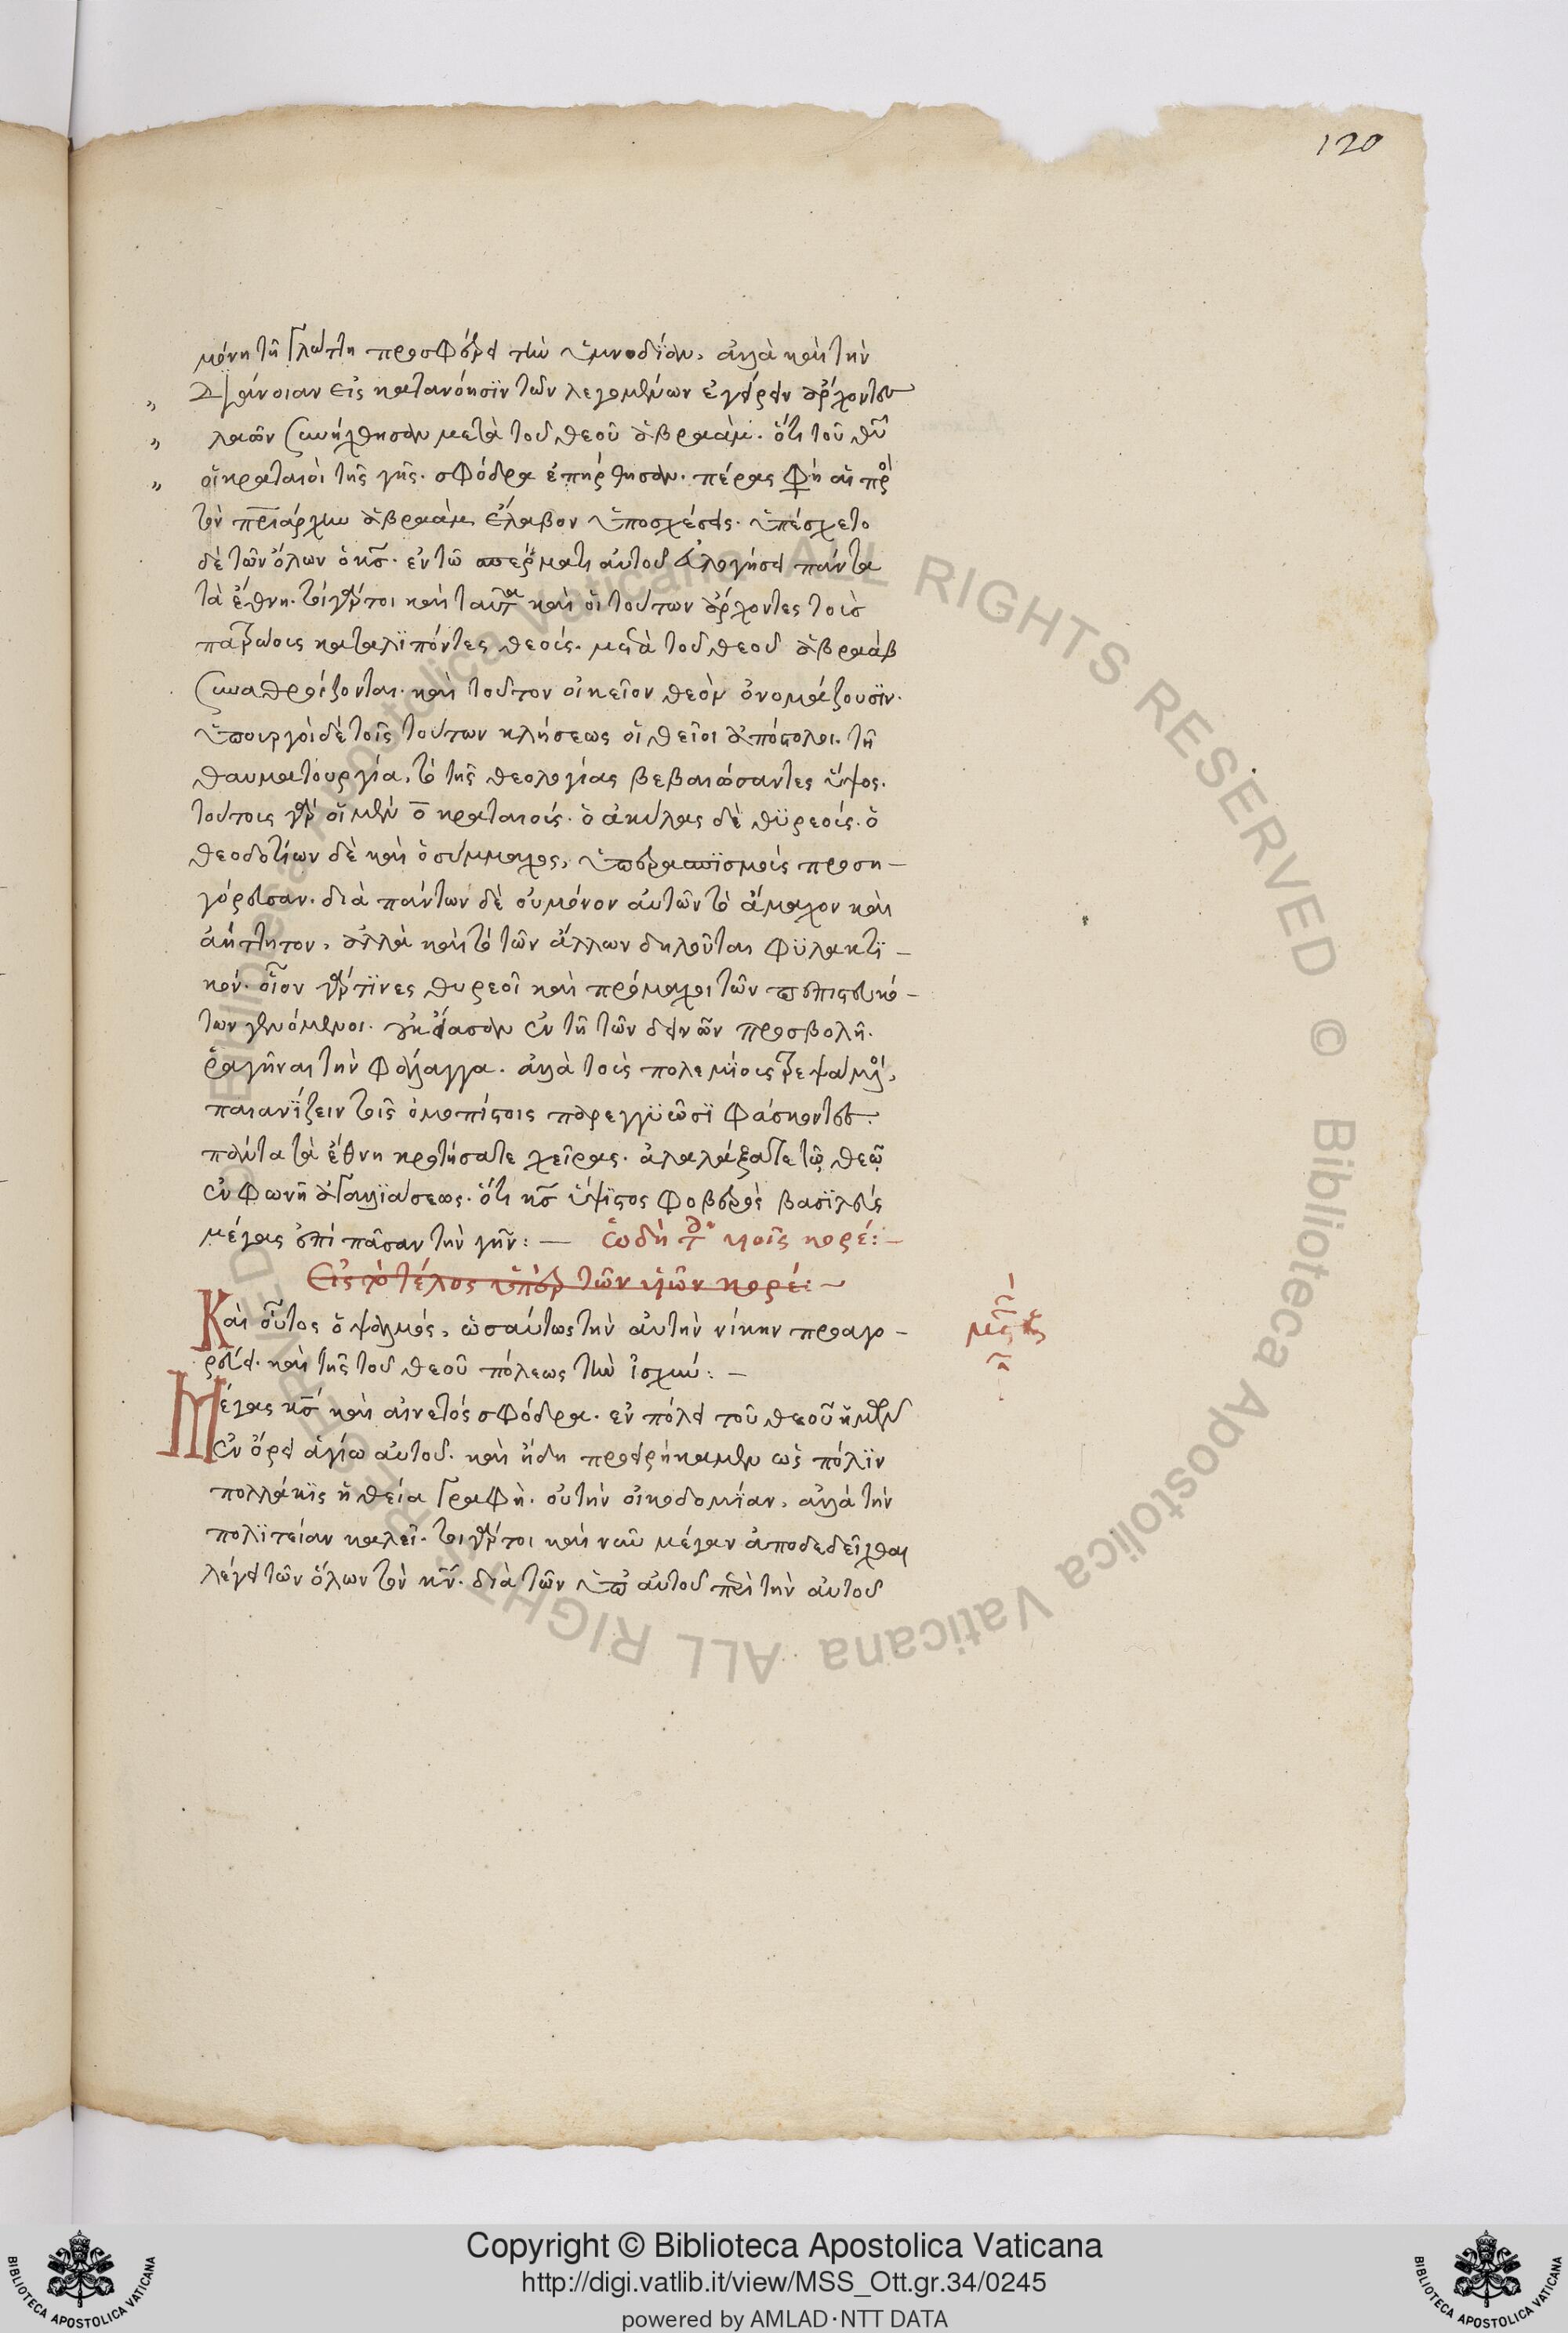 120
μόνη τῆ γλώττη προσφέρει τὴν ὑμνωδίαν, ἀλλὰ καὶ τὴν
διάνοιαν εἰς κατανόησϊν τῶν λεγομένων ἐγείρειν ἄρχοντες
λαῶν συνήχθησαν μετὰ τοῦ θεοῦ ἀβραάμ. ὅτι τοῦ θῦ
οἱ κραταιοὶ τῆς γῆς. σφόδρα ἐπήρθησαν. πέρας φη αἱ πρὸς
τὸν πριάρχην ἀβραὰμ ἔλαβον ὑποσχέσεις. ὑπέσχετο
δὲ τῶν ὅλων ὁ κς. ἐν τῶ σπέρματι αὐτοῦ εὐλογήσει πάντα
τὰ ἔθνη. τοιγάρτοι καὶ ταῦτα καὶ οἱ τούτων ἄρχοντες τοὺς
πατρώους καταλϊπόντες θεοὺς. μετὰ τοῦ θεοῦ ἀβραὰβ
συναθροίζονται. καὶ τοῦτον οἰκεῖον θεὸν ὀνομάζουσϊν.
ὑπουργοὶ δὲ τοῖς τούτων κλήσεως οἱ θεῖοι ἀπόστολοι. τῆ
θαυματουργία, τὸ τῆς θεολογίας βεβαιώσαντες ὕψος.
τούτους γὰρ οἱ μὲν ο κραταιοὺς. ὁ ἀκύλας δὲ θϋρεοὺς. ὁ
θεοδοτίων δὲ καὶ ὁ σύμμαχος, ὑπερασπϊσμοὺς προση-
γόρευσαν. διὰ πάντων δὲ οὐ μόνον αὐτῶν τὸ ἄμαχον καὶ
ἀήττητον, ἀλλὰ καὶ τὸ τῶν ἄλλων δηλοῦται φϋλακτϊ-
κόν. οἷον γάρ τϊνες θυρεοὶ καὶ πρόμαχοι τῶν πεπιστευκό-
των γενόμενοι. οὐκ εἴασαν ἐν τῆ τῶν δεινῶν προσβολῆ.
ῥαγῆναι τὴν φάλαγγα. ἀλλὰ τοὺς πολεμϊους τρεψάμενοι,
παιανϊζειν τοῖς ὁμοπίστοις παρεγγϋῶσϊ φάσκοντες.
πάντα τὰ ἔθνη κροτήσατε χεῖρας. ἀλαλάξατε τῶ θεῶ
ἐν φωνῆ ἀγαλλϊάσεως. ὅτι κς ὕψϊστος φοβερὸς βασϊλεὺς
μέγας ἐπὶ πᾶσαν τὴν γῆν: — ὠδὴ τ υἱοῖς κορέ: -
Εἰς τὸ τέλος ὑπὲρ τῶν υἱῶν κορέ: ~
Καὶ οὗτος ὁ ψαλμός, ὡσαύτως τὴν αὐτὴν νίκην προαγο-
ρεύει. καὶ τῆς τοῦ θεοῦ πόλεως τὴν ἰσχύν: -
Μέγας κς καὶ αἰνετὸς σφόδρα. ἐν πόλει τοῦ θεοῦ ἡμῶν
ἐν ὄρει ἁγίω αὐτοῦ. καὶ ἤδη προειρήκαμεν ὡς πόλϊν
πολλάκϊς ἡ θεία γραφὴ. οὐ τὴν οἰκοδομϊαν, ἀλλὰ τὴν
πολϊτείαν καλεῖ. τοιγάρτοι καὶ νῦν μέγαν ἀποδεδεῖχθαι
λέγει τῶν ὅλων τὸν κν. διὰ τῶν ὑπ αὐτοῦ περὶ τὴν αὐτοῦ
Copyright © Biblioteca Apostolica Vaticana
http://digi.vatlib.it/view/MSS_Ott.gr.34/0245
powered by AMLAD·NTT DATA
BIBLIOTECA APOSTOLICA VATICANA
BIBLIOTECA APOSTOLICA VATICANA
© Biblioteca Apostolica Vaticana ALL RIGHTS RESERVED © Biblioteca Apostolica Vaticana ALL RIGHTS RESERVED